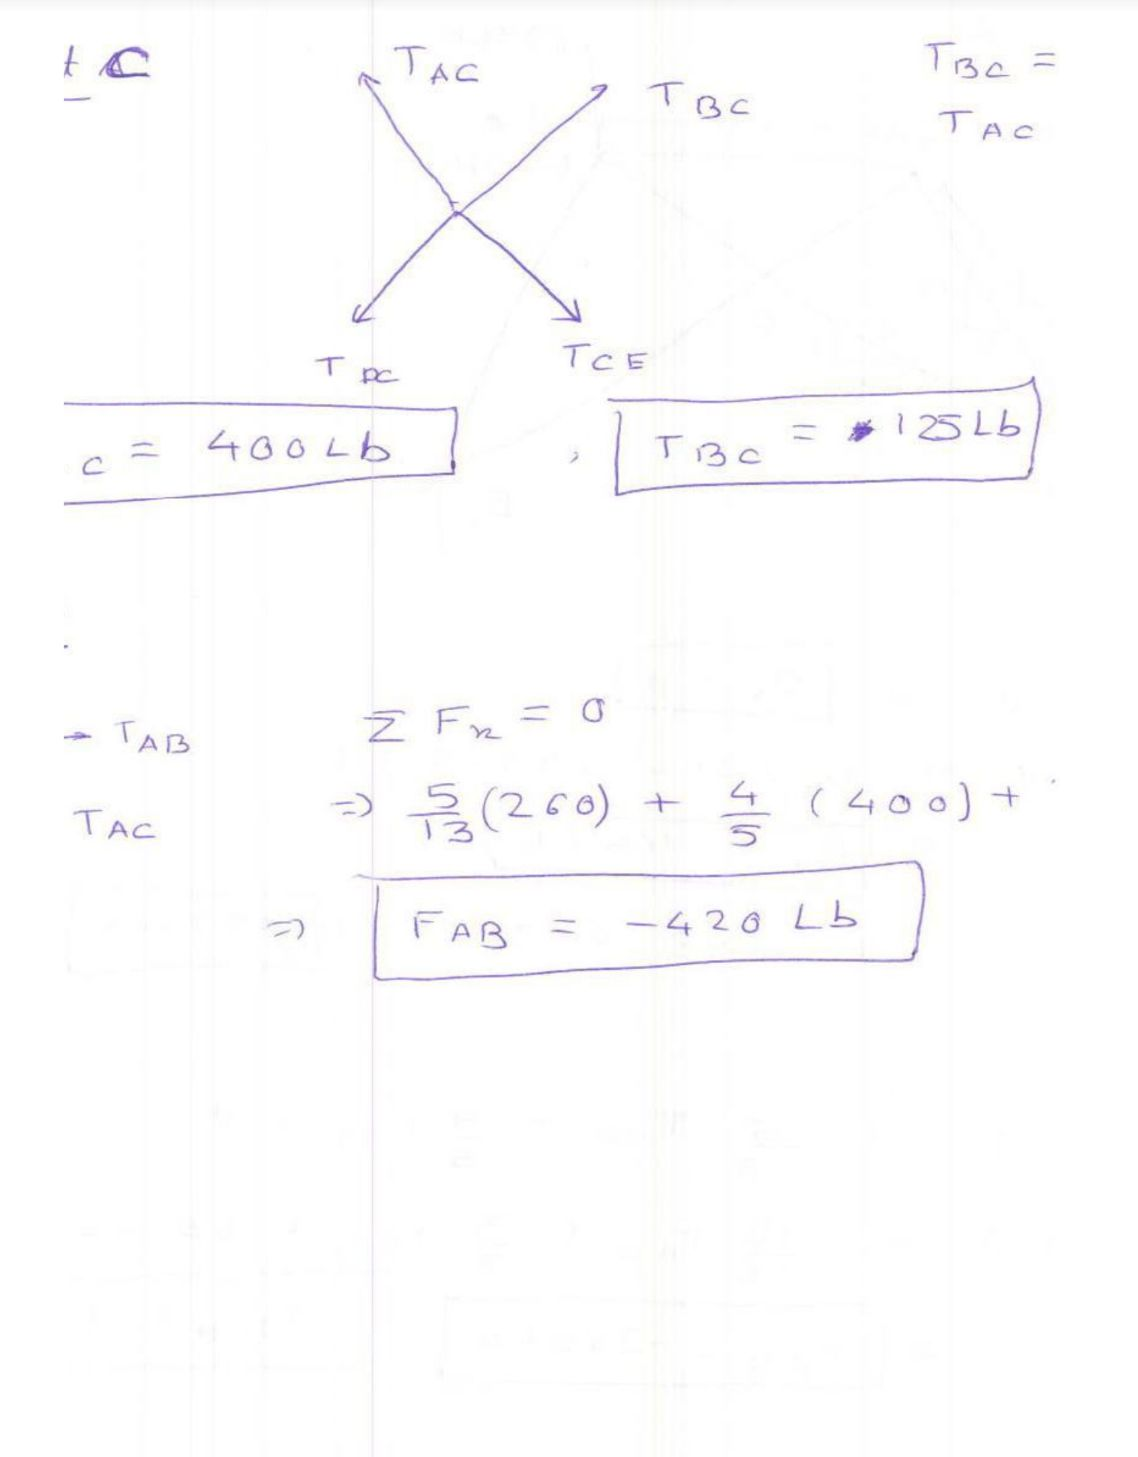 t C
T AC
T BC
T BC =
T AC
T DC
T CE
C = 400 Lb , T BC = 125 Lb
→ T AB
Σ Fx = 0
T AC
⇒ 5/13 (260) + 4/5 (400) +
⇒ F AB = -420 Lb